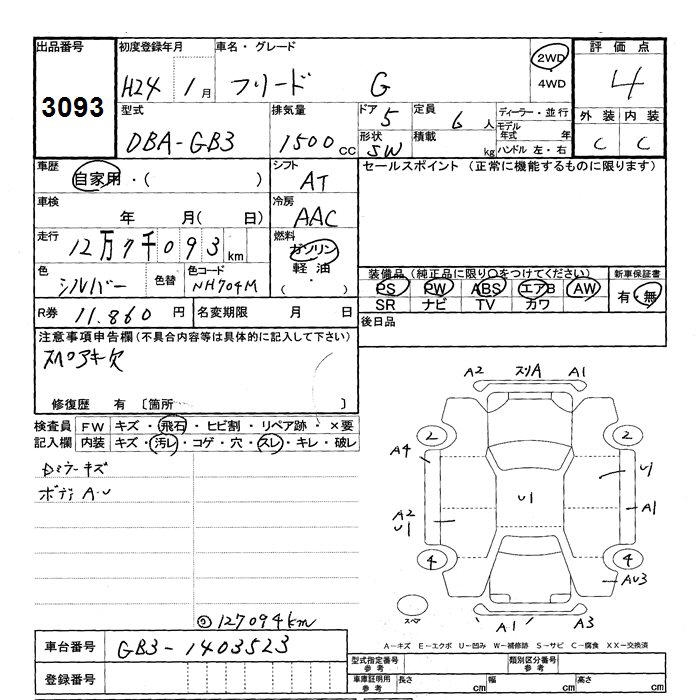 出品番号 初度登録年月 車名・グレード 評価点
3093 H24 1月 フリード G 2WD ・4WD 4
型式 排気量 ドア 5 定員 6人 ディーラー・並行 外装 内装
DBA-GB3 1500cc 形状 SW 積載 kg モデル年式 年 ハンドル 左・右 C C
車歴 シフト セールスポイント (正常に機能するものに限ります)
自家用・( ) AT
車検 冷房
年 月( 日) AAC
走行 燃料
12万7千093km ガソリン
色 色替 色コード 軽油
シルバー NH704M ( ・ )
装備品(純正品に限り○をつけてください) 新車保証書
PS PW ABS エアB AW 有・無
SR ナビ TV カワ
R券 11.860円 名変期限 月 日 後日品
注意事項申告欄(不具合内容等は具体的に記入して下さい)
スペアキ欠
修復歴 有 [箇所 ]
検査員 FW キズ・飛石・ヒビ割・リペア跡・×要
記入欄 内装 キズ・汚レ・コゲ・穴・スレ・キレ・破レ
Dミラーキズ
ボディ A.U
A2 スリA A1
2 2
A4 U1
U1
A2 A1
U1
4 4
AU3
スペア
A1 A3
127094km
車台番号 GB3-1403523
A-キズ E-エクボ U-凹み W-補修跡 S-サビ C-腐食 XX-交換済
登録番号
型式指定番号 参考 類別区分番号 参考
車庫証明用 参考 長さ cm 幅 cm 高さ cm